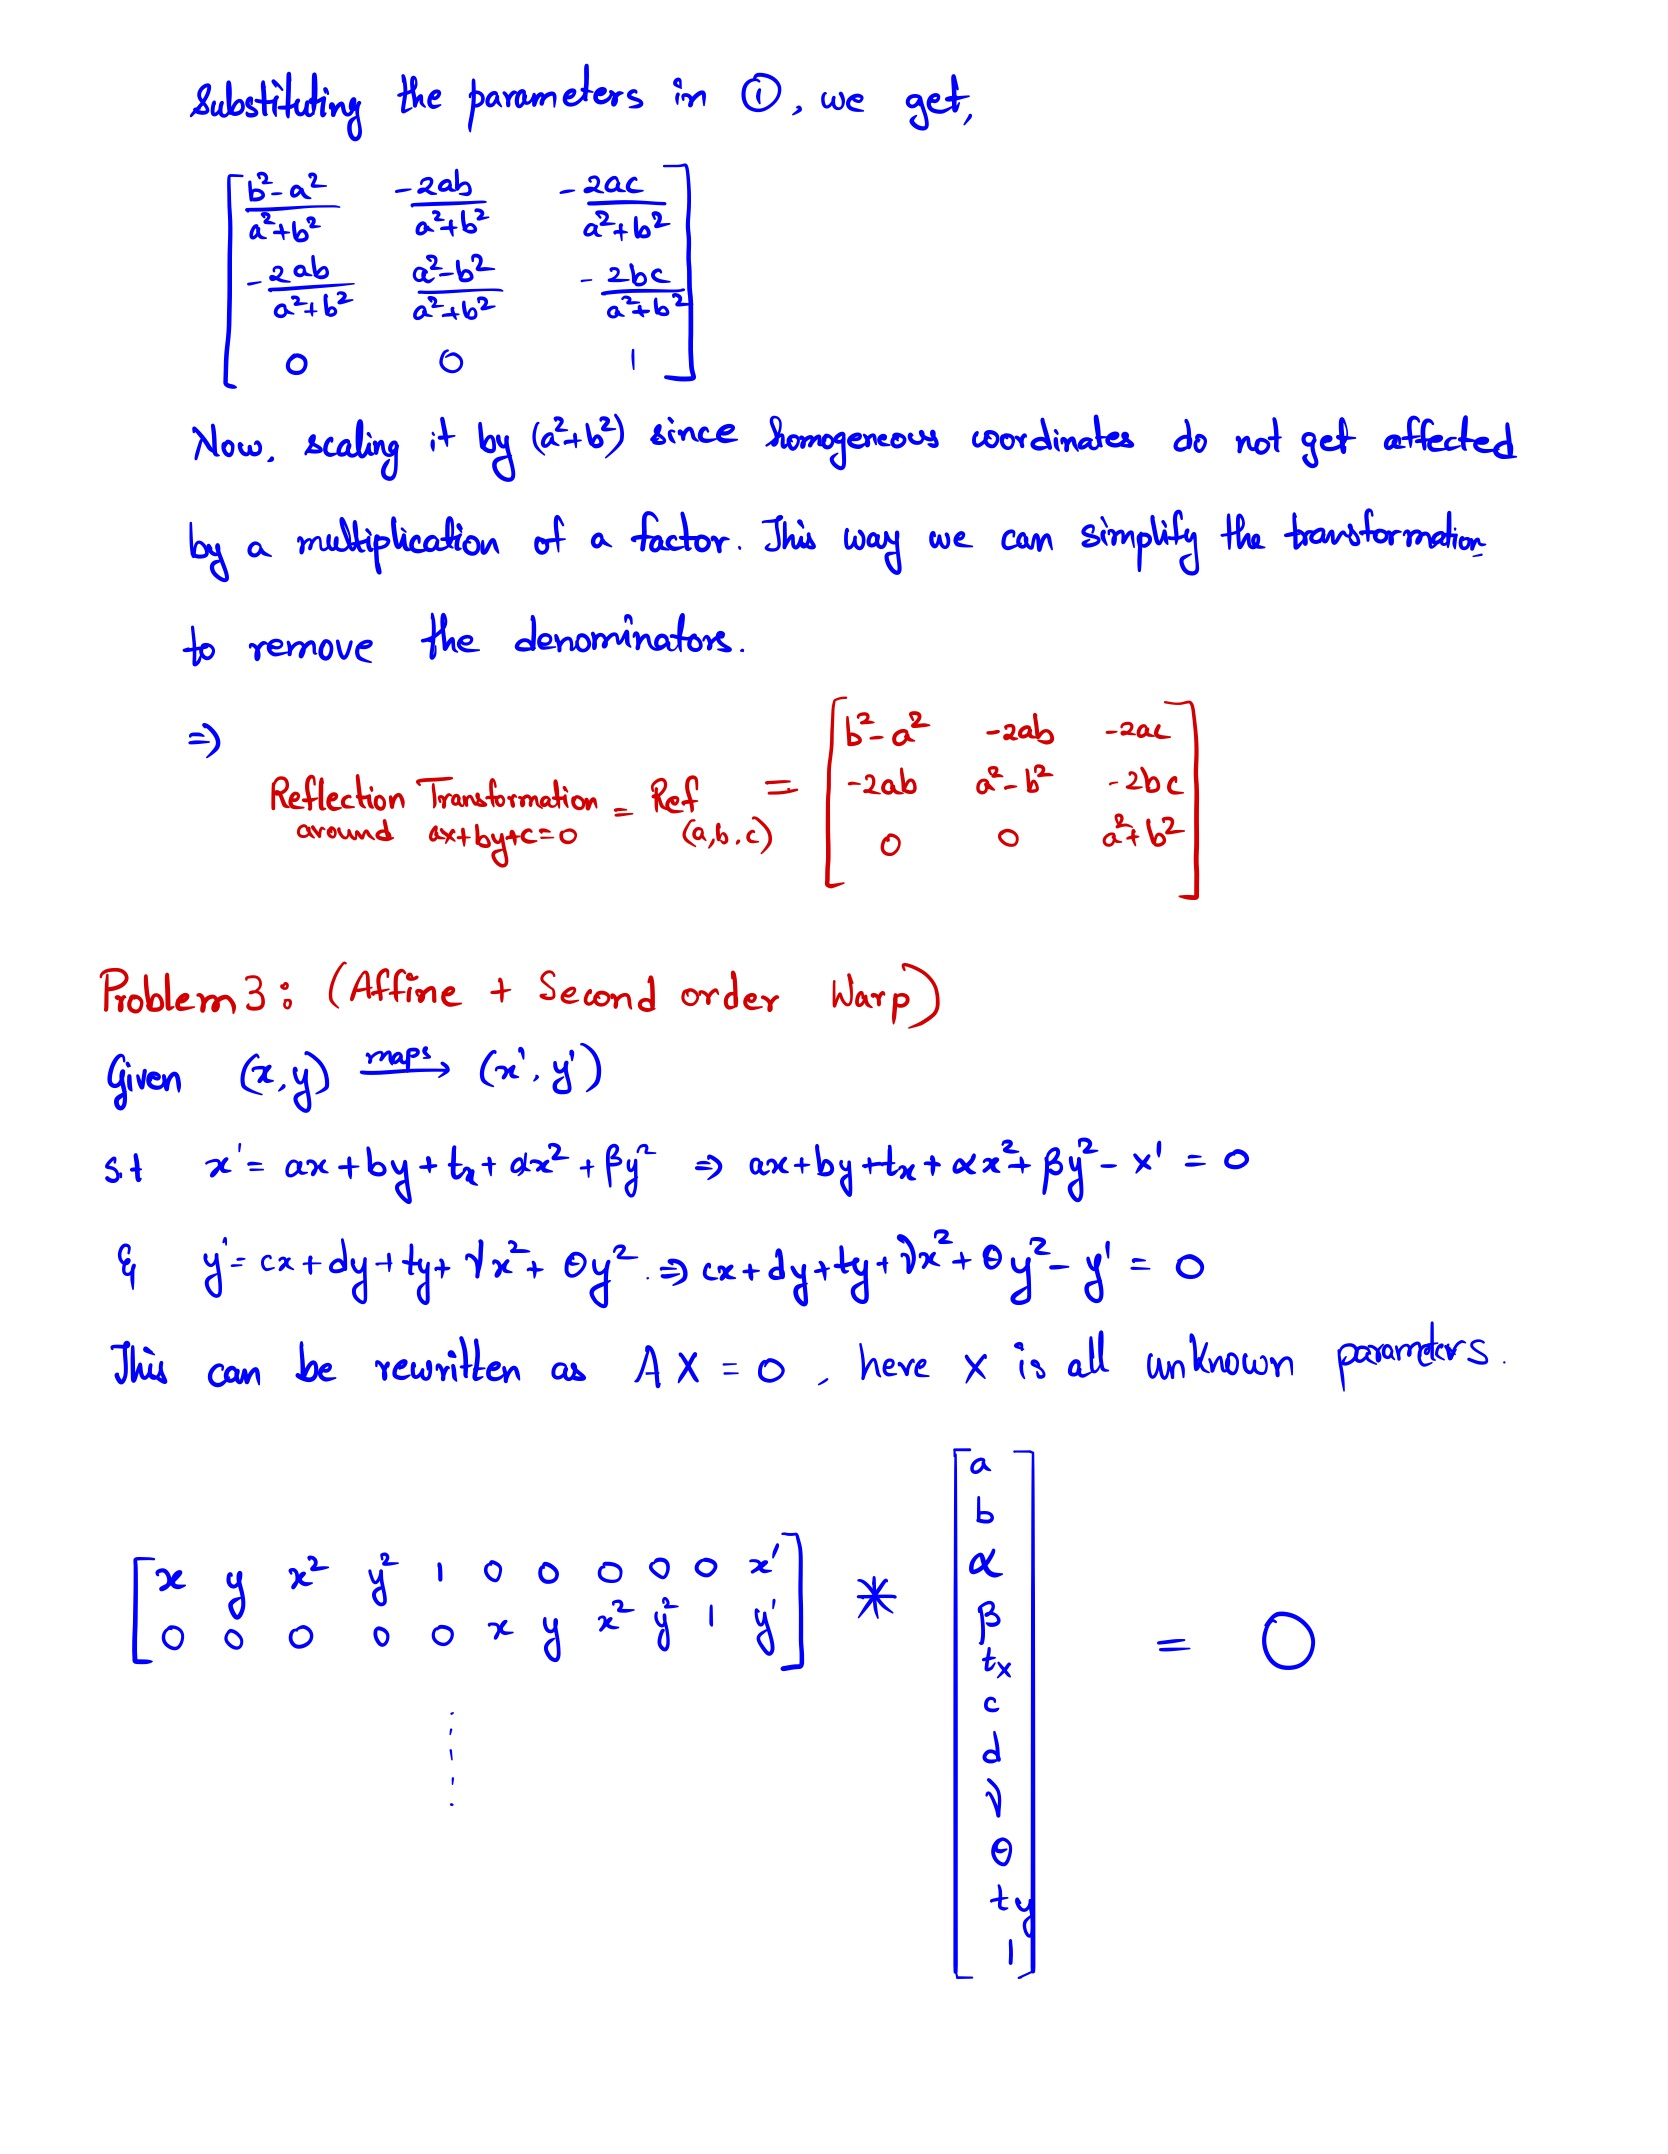 Substituting the parameters in ①, we get,
[ (b²-a²)/(a²+b²)  -2ab/(a²+b²)  -2ac/(a²+b²)
-2ab/(a²+b²)  (a²-b²)/(a²+b²)  -2bc/(a²+b²)
0  0  1 ]
Now, scaling it by (a²+b²) since homogeneous coordinates do not get affected
by a multiplication of a factor. This way we can simplify the transformation
to remove the denominators.
⇒
Reflection Transformation around ax+by+c=0 = Ref(a,b,c) = [ b²-a²  -2ab  -2ac
-2ab  a²-b²  -2bc
0  0  a²+b² ]
Problem 3: (Affine + Second order Warp)
Given (x,y) maps→ (x', y')
s.t x' = ax+by+tx+αx²+βy² ⇒ ax+by+tx+αx²+βy²-x' = 0
& y' = cx+dy+ty+γx²+θy². ⇒ cx+dy+ty+γx²+θy²-y' = 0
This can be rewritten as AX = 0, here X is all unknown parameters.
[ x  y  x²  y²  1  0  0  0  0  0  x'
0  0  0  0  0  x  y  x²  y²  1  y' ]
*
[ a
b
α
β
tx
c
d
γ
θ
ty
1 ]
= 0